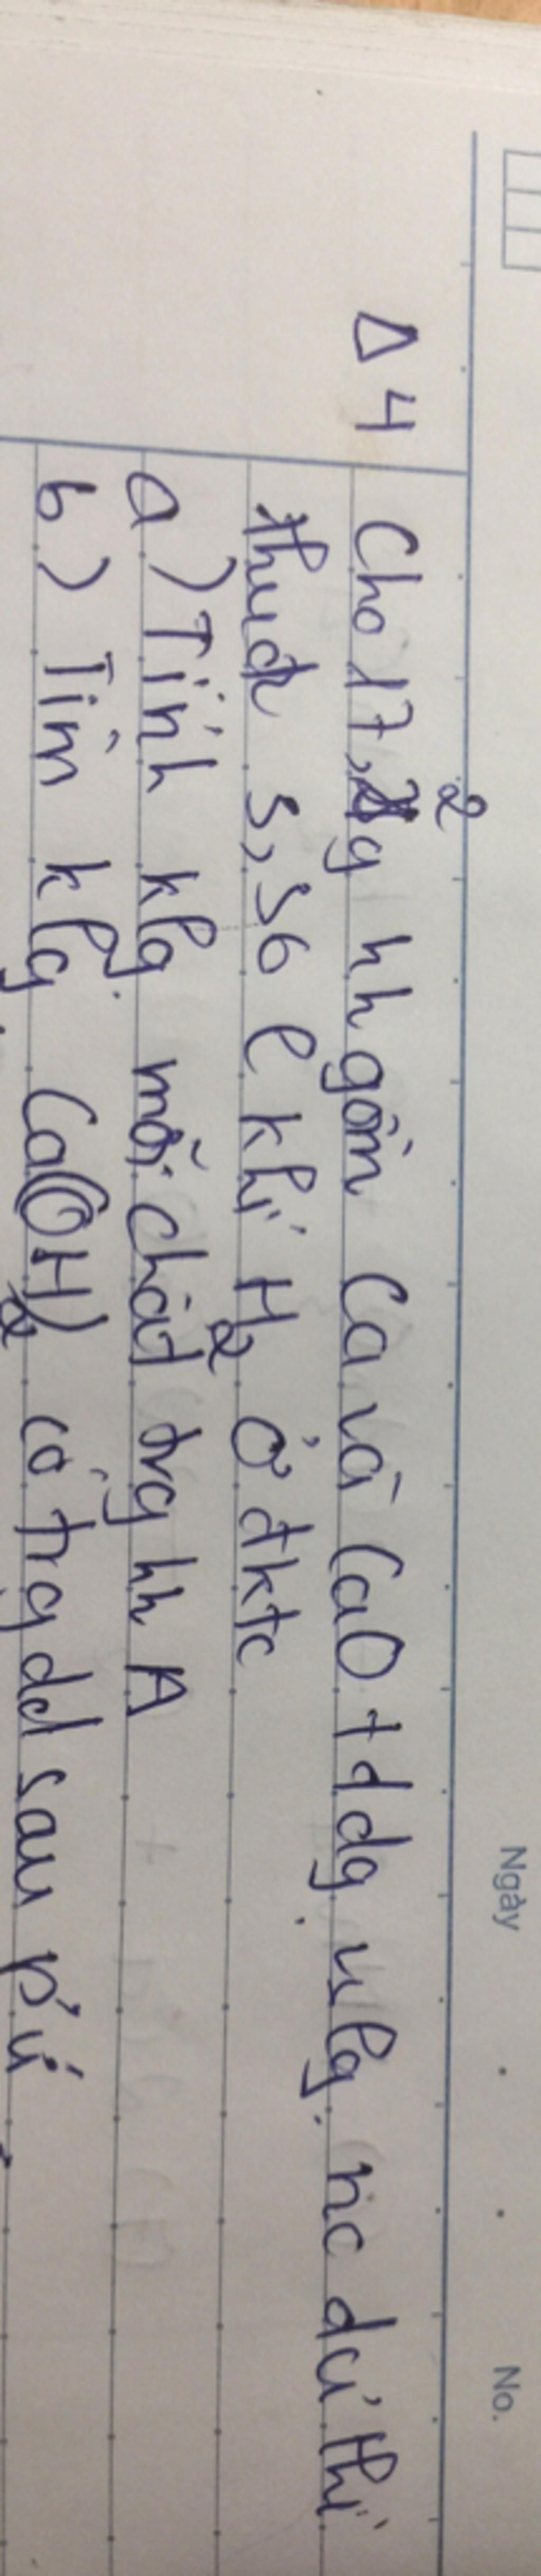 Ngày No.
Δ4 Cho 17,2g hh gồm Ca và CaO td dg vs lg nc dư thì
thu đc 5,56 l khí H2 ở đktc
a) Tính klg mỗi chất trg hh A
b) Tìm klg Ca(OH)2 có trg dd sau pứ